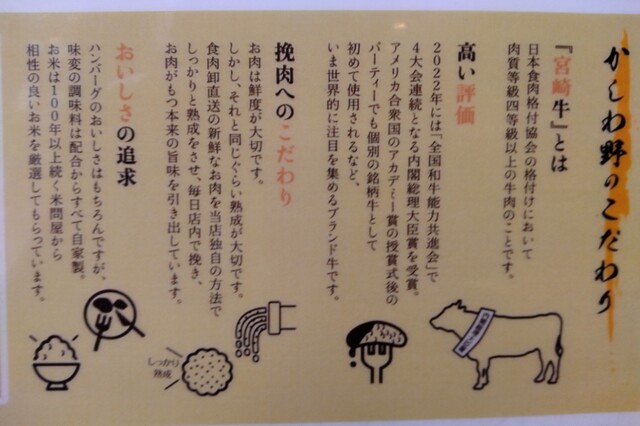 かしわ野のこだわり
『宮崎牛』とは
日本食肉格付協会の格付けにおいて
肉質等級四等級以上の牛肉のことです。
高い評価
2022年には「全国和牛能力共進会」で
4大会連続となる内閣総理大臣賞を受賞。
アメリカ合衆国のアカデミー賞の授賞式後の
パーティーでも個別の銘柄牛として
初めて使用されるなど、
いま世界的に注目を集めるブランド牛です。
挽肉へのこだわり
お肉は鮮度が大切です。
しかし、それと同じぐらい熟成が大切です。
食肉卸直送の新鮮なお肉を当店独自の方法で
しっかりと熟成をさせ、毎日店内で挽き、
お肉がもつ本来の旨味を引き出しています。
しっかり
熟成
おいしさの追求
ハンバーグのおいしさはもちろんですが、
味変の調味料は配合からすべて自家製。
お米は100年以上続く米問屋から
相性の良いお米を厳選してもらっています。